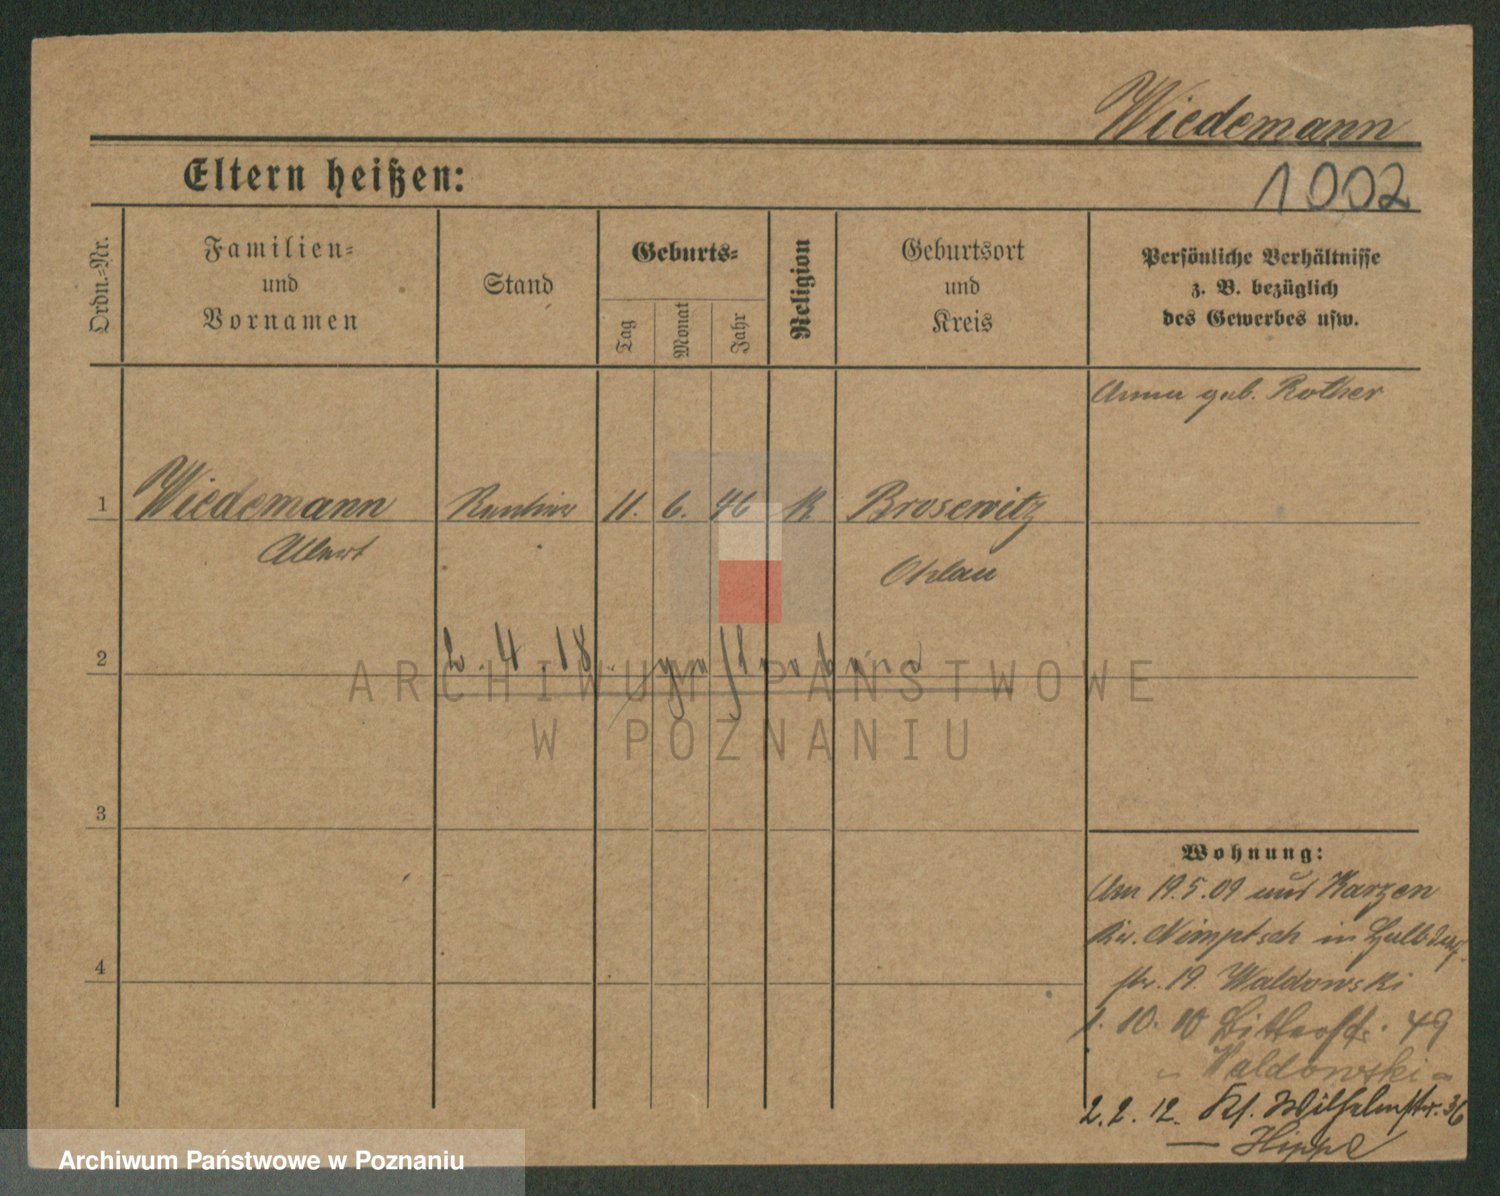 Wiedemann
Eltern heißen:
1002
Ordn.-Nr.
Familien-
und
Vornamen
Stand
Geburts-
Tag
Monat
Jahr
Religion
Geburtsort
und
Kreis
Persönliche Verhältnisse
z. B. bezüglich
des Gewerbes usw.
Anna geb. Rother
1 Wiedemann Rentier 11. 6. 46 K Brosewitz
Albert Ohlau
2 2. 4. 18 gestorben
ARCHIWUM PAŃSTWOWE
W POZNANIU
3
Wohnung:
Am 19.5.09 aus Karzen
Kr. Nimptsch in
4
str. 19. Waldowski
1. 10. 10 49
- Waldowski -
2. 2. 12. Kl. Wilhelmstr. 36
— Hippe
Archiwum Państwowe w Poznaniu